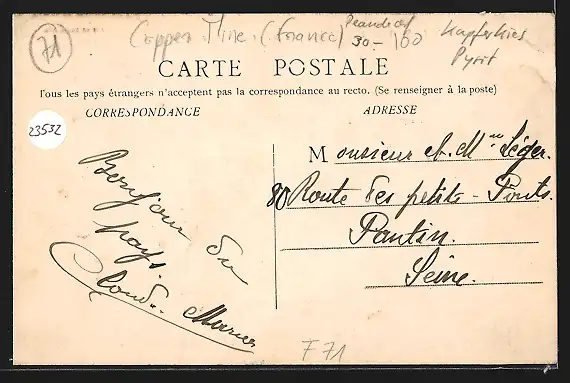 71
Copper Mine (France)
30- 100
Kupferkies
Pyrit
CARTE POSTALE
Tous les pays étrangers n'acceptent pas la correspondance au recto. (Se renseigner à la poste)
CORRESPONDANCE
ADRESSE
23532
Monsieur et Mme Léger.
80 Route des petits-Ponts.
Pantin.
Seine.
Bonjour du
pays.
F71